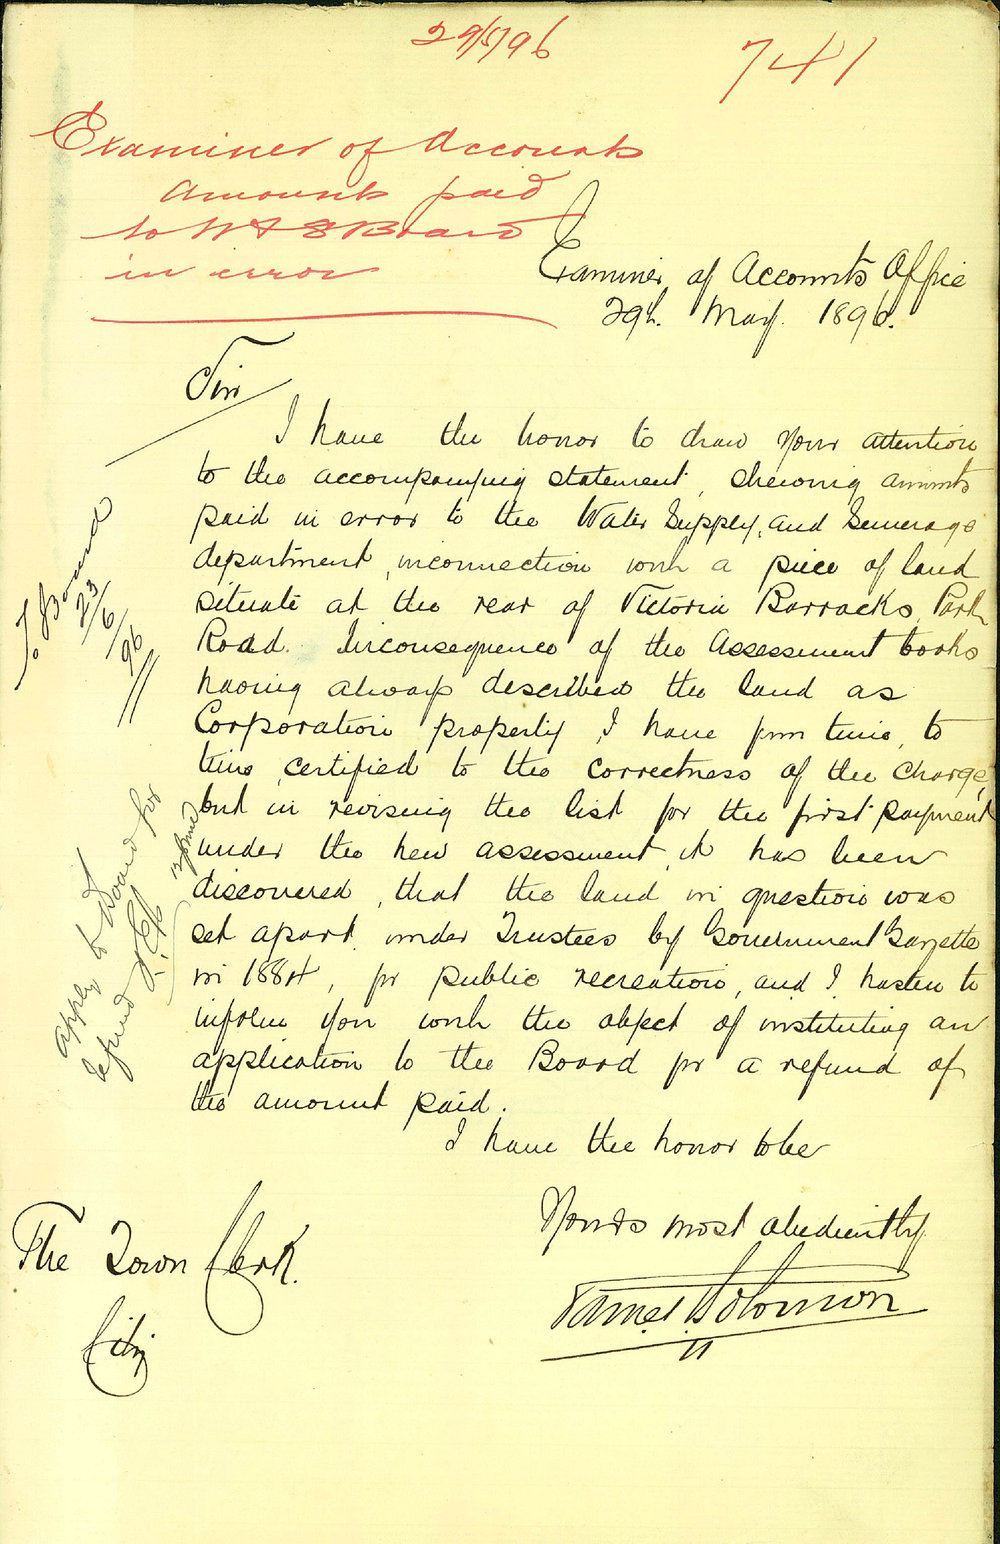 29/5/96
741
Examiner of Accounts
Amounts paid
to W & S Board
in error
Examiner of Accounts Office
29th. May. 1896.
Sir
I have the honor to draw your attention
to the accompanying statement, shewing amounts
paid in error to the Water Supply, and Sewerage
department, inconnection with a piece of land
situate at the rear of Victoria Barracks, Park
Road. Inconsequence of the Assessment books
having always described the land as
Corporation property, I have from time, to
time, certified to the correctness of the charge,
but in revising the list for the first payment
under the new assessment, it has been
discovered, that the land in question was
set apart, under Trustees by Government Gazette
in 1884, for public recreation, and I hasten to
inform you with the object of instituting an
application to the Board for a refund of
the amount paid.
I have the honor to be
Yours most obediently
James Solomon
The Town Clerk.
City
To Board
23/6/96
apply to Board for
refund